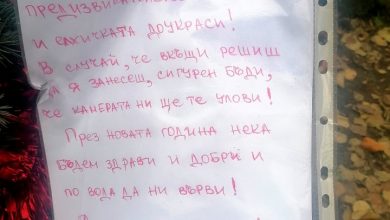 И ЕЛХИЧКАТА ДОУКРАСИ!
В СЛУЧАЙ, ЧЕ ВКЪЩИ РЕШИШ
ДА Я ЗАНЕСЕШ, СИГУРЕН БЪДИ,
ЧЕ КАМЕРАТА НИ ЩЕ ТЕ УЛОВИ!
ПРЕЗ НОВАТА ГОДИНА НЕКА
БЪДЕМ ЗДРАВИ И ДОБРИ И
ПО ВОДА ДА НИ ВЪРВИ!